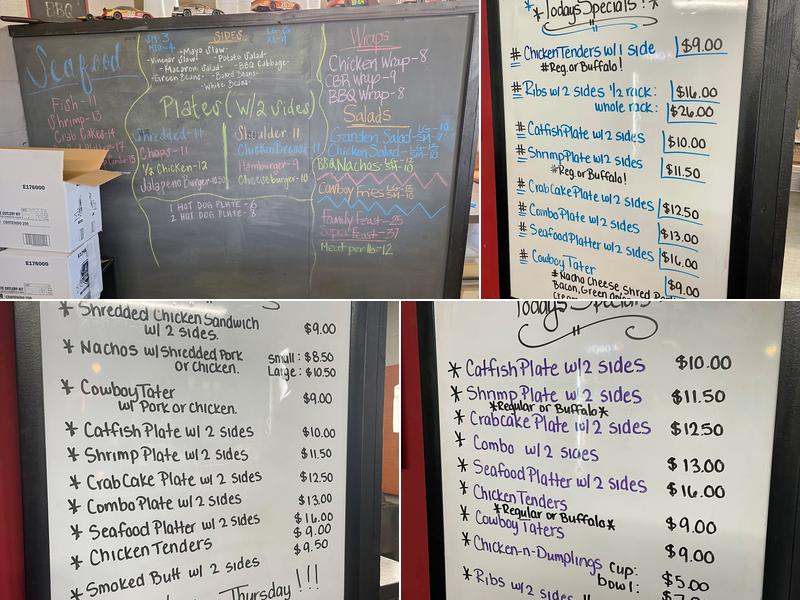 BBQ
Seafood
Fish-11
Shrimp-13
Crab Cakes-14
Platter-17
Combo-15
E176000
E176000
SIDES
SM-3
MED-4
LG-6
-Mayo Slaw-
-Vinegar Slaw- -Potato Salad-
-Macaroni Salad- -BBQ Cabbage-
-Green Beans- -Baked Beans-
-White Beans-
Plates (w/2 sides)
Shredded-11
Chops-11
1/2 Chicken-12
Jalapeno Burger-10.50
Shoulder-11
Chicken Breast-11
Hamburger-9
Cheeseburger-10
1 HOT DOG PLATE-6
2 HOT DOG PLATE-8
Wraps
Chicken Wrap-8
CBR Wrap-9
BBQ Wrap-8
Salads
Garden Salad-
Chicken Salad-
BBQ Nachos-LG-12
SM-10
Cowboy Fries-LG-13
SM-10
Family Feast-25
Super Feast-37
Meat per lb-12
*Todays Specials!*
# Chicken Tenders w/1 side $9.00
#Reg. or Buffalo!
# Ribs w/2 sides 1/2 rack: $16.00
whole rack: $26.00
# Catfish Plate w/2 sides $10.00
# Shrimp Plate w/2 sides $11.50
*Reg. or Buffalo!
# Crab Cake Plate w/2 sides $12.50
# Combo Plate w/2 sides $13.00
# Seafood Platter w/2 sides $16.00
# Cowboy Tater $9.00
*Nacho Cheese, Shred
Bacon, Green
* Shredded Chicken Sandwich
w/ 2 sides. $9.00
* Nachos w/Shredded Pork
or Chicken. small: $8.50
Large: $10.50
* Cowboy Tater
w/ Pork or Chicken. $9.00
* Catfish Plate w/ 2 sides $10.00
* Shrimp Plate w/ 2 sides $11.50
* Crab Cake Plate w/ 2 sides $12.50
* Combo Plate w/ 2 sides $13.00
* Seafood Platter w/ 2 sides $16.00
* Chicken Tenders $9.00
* Smoked Butt w/ 2 sides $9.50
Thursday!!!
Todays Specials
* Catfish Plate w/2 sides $10.00
* Shrimp Plate w/2 sides $11.50
*Regular or Buffalo*
* Crabcake Plate w/2 sides $12.50
* Combo w/2 sides $13.00
* Seafood Platter w/2 sides $16.00
* Chicken Tenders
*Regular or Buffalo* $9.00
* Cowboy Taters $9.00
* Chicken-n-Dumplings cup: $5.00
bowl:
* Ribs w/2 sides